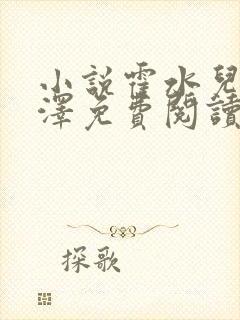 小說霍水兒
澤免費閱讀
探歌